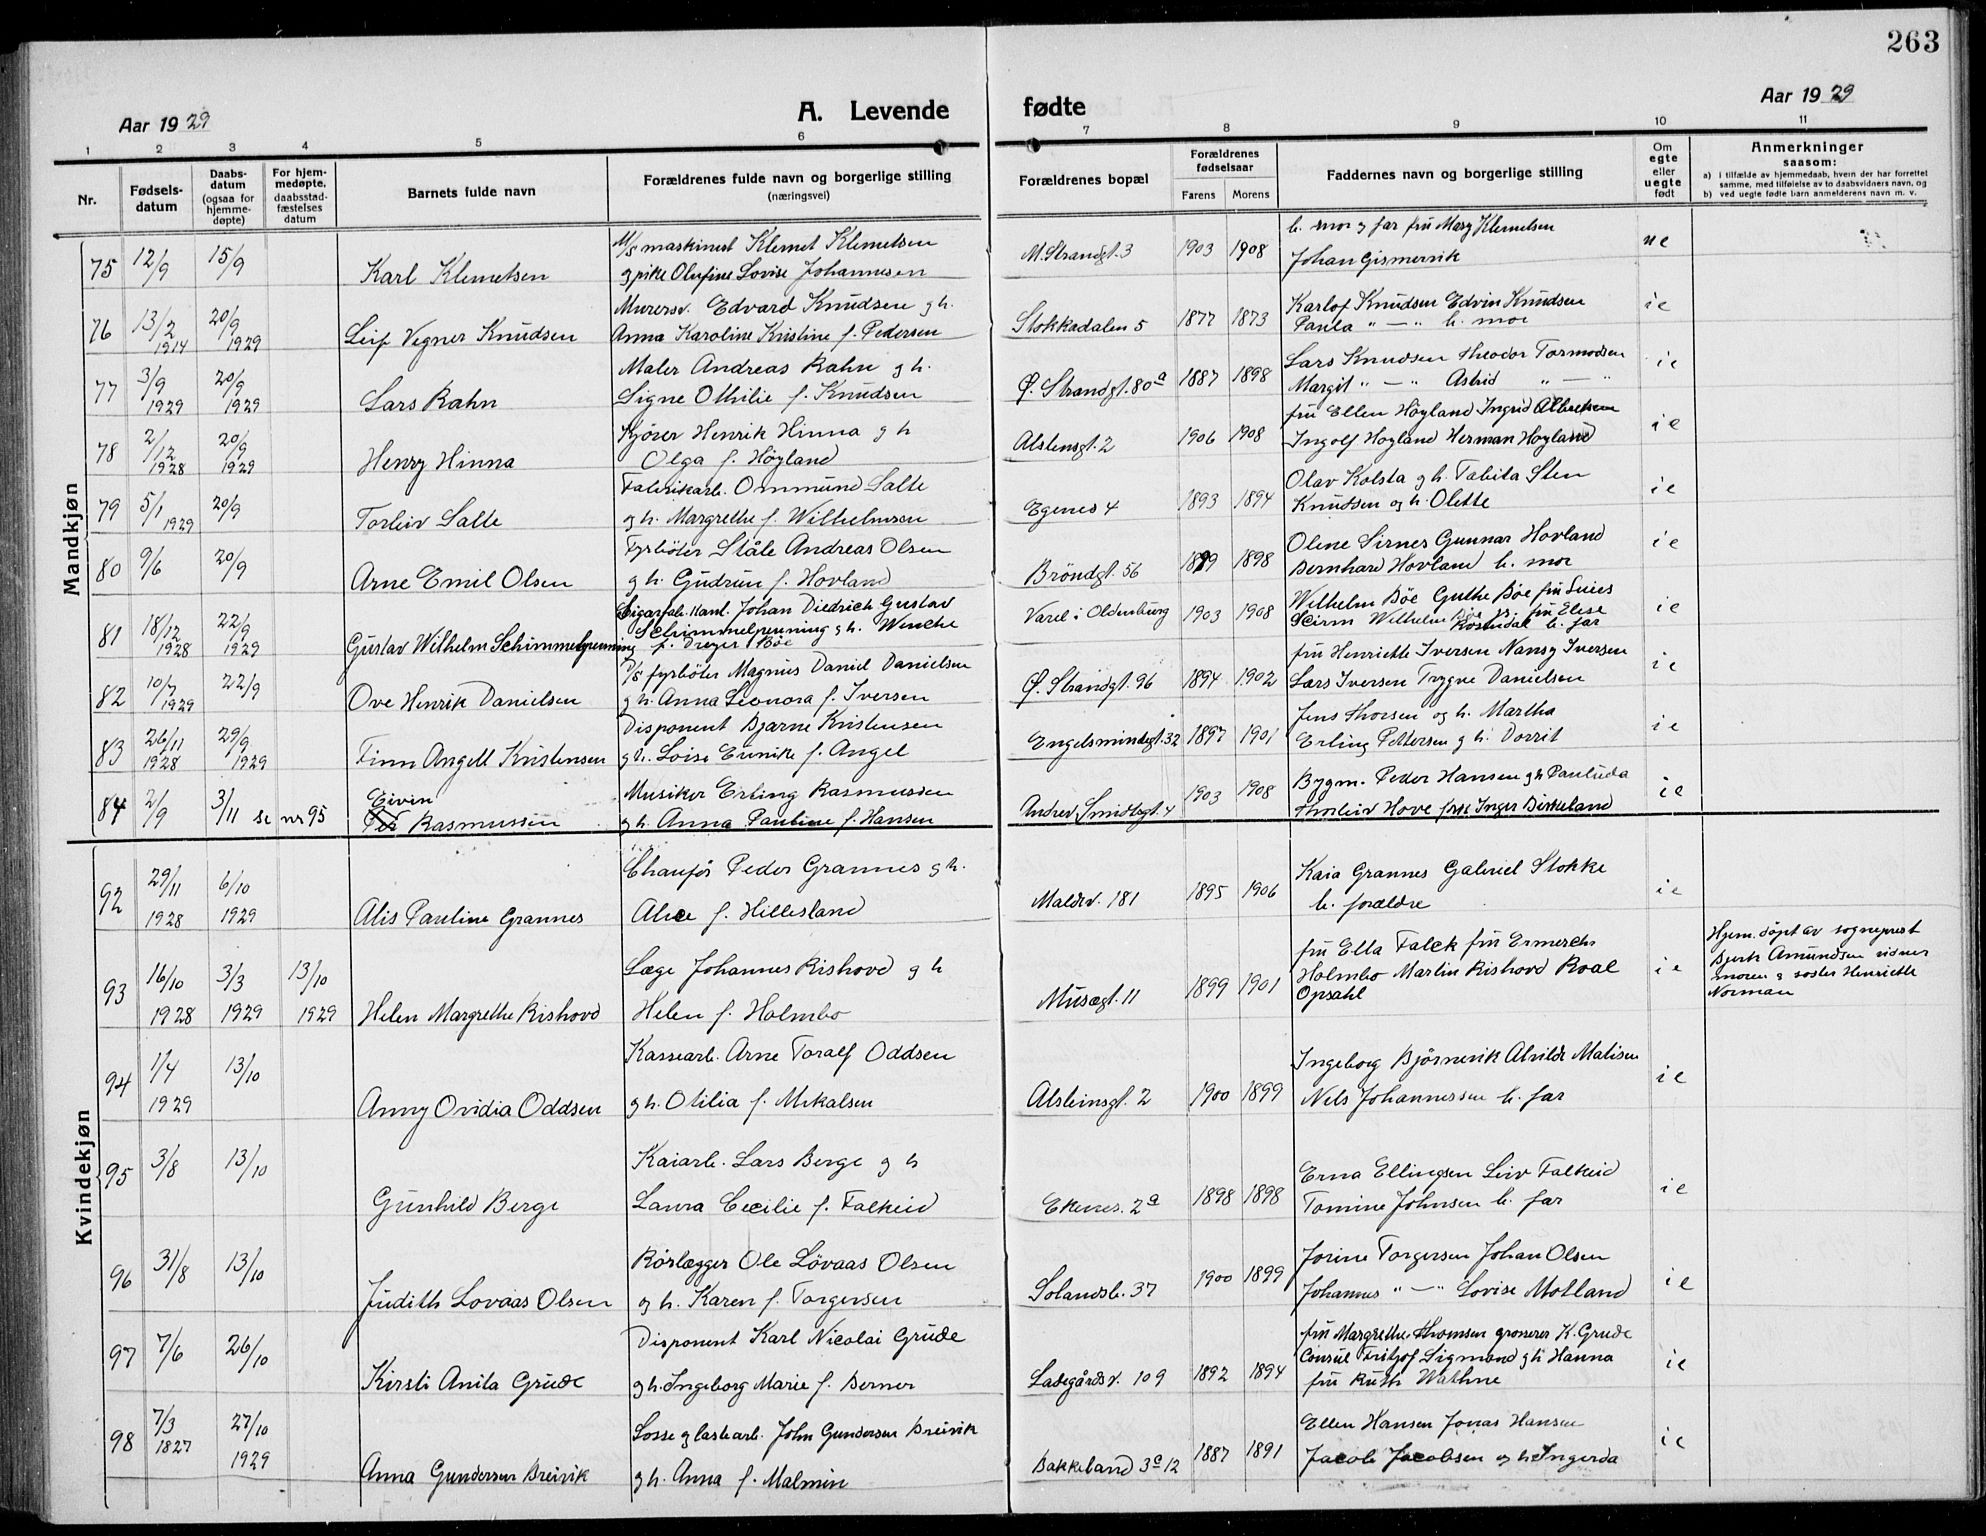 263
Aar 1929
A. Levende fødte
Aar 1929
1 2 3 4 5 6 7 8 9 10 11
Nr.
Fødsels-
datum
Daabs-
datum
(ogsaa for
hjemme-
døpte)
For hjem-
medøpte,
daabsstad-
fæstelses
datum
Barnets fulde navn
Forældrenes fulde navn og borgerlige stilling
(næringsvei)
Forældrenes bopæl
Forældrenes
fødselsaar
Farens Morens
Faddernes navn og borgerlige stilling
Om
egte
eller
uegte
født
Anmerkninger
saasom:
a) i tilfælde av hjemmedaab, hvem der har forrettet
samme, med tilføielse av to daabsvidners navn, og
b) ved uegte fødte barn anmelderens navn m. v.
Mandkjøn
75 12/9 15/9 Karl Klemetsen
M/S maskinist Klemet Klemetsen
g pike Olufine Lovise Johannesen
M. Strandgt. 3 1903 1908
b. mor g far fru Mary Klemetsen
Johan Gismervik
ue
76 13/2 1914 20/9 1929 Leif Vegner Knudsen
Murersv. Edvard Knudsen g h.
Anna Karoline Kristine f. Pedersen
Stokkadalen 5 1877 1873
Karlof Knudsen Edvin Knudsen
Paula " — " b. mor
ie
77 3/9 1929 20/9 1929 Lars Rahn
Maler Andreas Rahn g h.
Signe Othilie f. Knudsen
Ø. Strandgt. 80a 1887 1898
Lars Knudsen Theodor Tormodsen
Margit " — " Astrid " — "
ie
78 2/12 1928 20/9 1929 Henry Hinna
Kjører Henrik Hinna g h
Olga f. Høyland
Alstensgt. 2 1906 1908
fru Ellen Høyland Ingrid Albretsen
Ingolf Hoyland Herman Hoyland
ie
79 5/1 1929 20/9 Torleiv Salte
Fabrikarb. Ommund Salte
og h. Margrethe f. Wilhelmsen
Egenes 4 1893 1894
Olav Kolsta g h. Tabita Sten
Knudsen og h. Olette
ie
80 9/6 20/9 Arne Emil Olsen
Fyrbøter Ståle Andreas Olsen
g h. Gudrun f. Hovland
Bröndgt. 56 1899 1898
Olene Sirnes Gunnar Hovland
Bernhard Hovland b. mor
ie
81 18/12 1928 22/9 1929 Gustav Wilhelm Schimmelpenning
Sigarfab. kant. Johan Diedrich Gustav
Schimmelpenning g h. Wenche
f. Dreyer Böe
Varel i Oldenburg 1903 1908
Wilhelm Böe Guthe Böe fru
Wilhelm fru Elise
Rosendal b. far
ie
82 10/7 1929 22/9 Ove Henrik Danielsen
D/S fyrböter Magnus Daniel Danielsen
g h. Anna Leonora f. Iversen
Ø. Strandgt. 96 1894 1902
fru Henriette Iversen Nansy Iversen
Lars Iversen Trygve Danielsen
ie
83 26/11 1928 29/9 1929 Finn Angell Kristensen
Disponent Bjarne Kristensen
g h. Loise Eunike f. Angel
Engelsmindegt. 32 1897 1901
Jens Thorsen og h. Martha
Erling Pettersen g h. Dorrit
ie
84 2/9 3/11 se nr 95 Eivin
Rasmussen
Musiker Erling Rasmussen
g h. Anna Pauline f. Hansen
Andrew Smidtsgt. 4 1903 1908
Bygm. Peder Hansen g h Paulida
Thorleiv Hove frk Inger Birkeland
ie
Kvindekjøn
92 29/11 1928 6/10 1929 Alis Pauline Grannes
Chaufør Peder Grannes g h.
Alice f. Hillesland
Maldev. 181 1895 1906
Kaia Grannes Gabriel Stokke
b. forældre
ie
93 16/10 1928 3/3 1929 13/10 1929 Helen Margrethe Rishovd
Læge Johannes Rishovd g h
Helen f. Holmbo
Musegt. 11 1899 1901
fru Ella Falck fru
Holmbo Martin Rishovd Roal
Opsahl
ie
Hjem. døpt av sogneprest
Bjerk Amundsen vidner
moren g søster Henriette
Norman
94 1/4 1929 13/10 Anny Ovidia Oddsen
Kassearb. Arne Toralf Oddsen
g h. Otilia f. Mikalsen
Alsteinsgt. 2 1900 1899
Ingeborg Bjørnevik Alvilde Matisen
Nils Johannessen b. far
ie
95 3/8 13/10 Gunhild Berge
Kaiarb. Lars Berge g h
Laura Cecilie f. Falkeid
Ekenes. 2a 1898 1898
Erna Ellingsen Leiv Falkeid
Tomine Johnsen b. far
ie
96 31/8 13/10 Judith Lovaas Olsen
Rörlægger Ole Lövaas Olsen
og h. Karen f. Torgersen
Solandsb. 37 1900 1899
Jorine Torgersen Johan Olsen
Johannes " — " Lovise Motland
ie
97 7/6 26/10 Kirsti Anita Grude
Disponent Karl Nicolai Grude
g h. Ingeborg Marie f. Berner
Ladegårdsv. 109 1892 1894
fru Margrethe Thomsen grosserer K. Grude
Consul Fritjof Sigmond g h Hanna
fru Ruth Wathne
ie
98 7/3 1827 27/10 1929 Anna Gundersen Breivik
Losse g lastearb. John Gundersen Breivik
g h. Anna f. Malmin
Bakkeland 3a 12 1887 1891
Ellen Hansen Jonas Hansen
Jacob Jacobsen og h Ingerda
ie